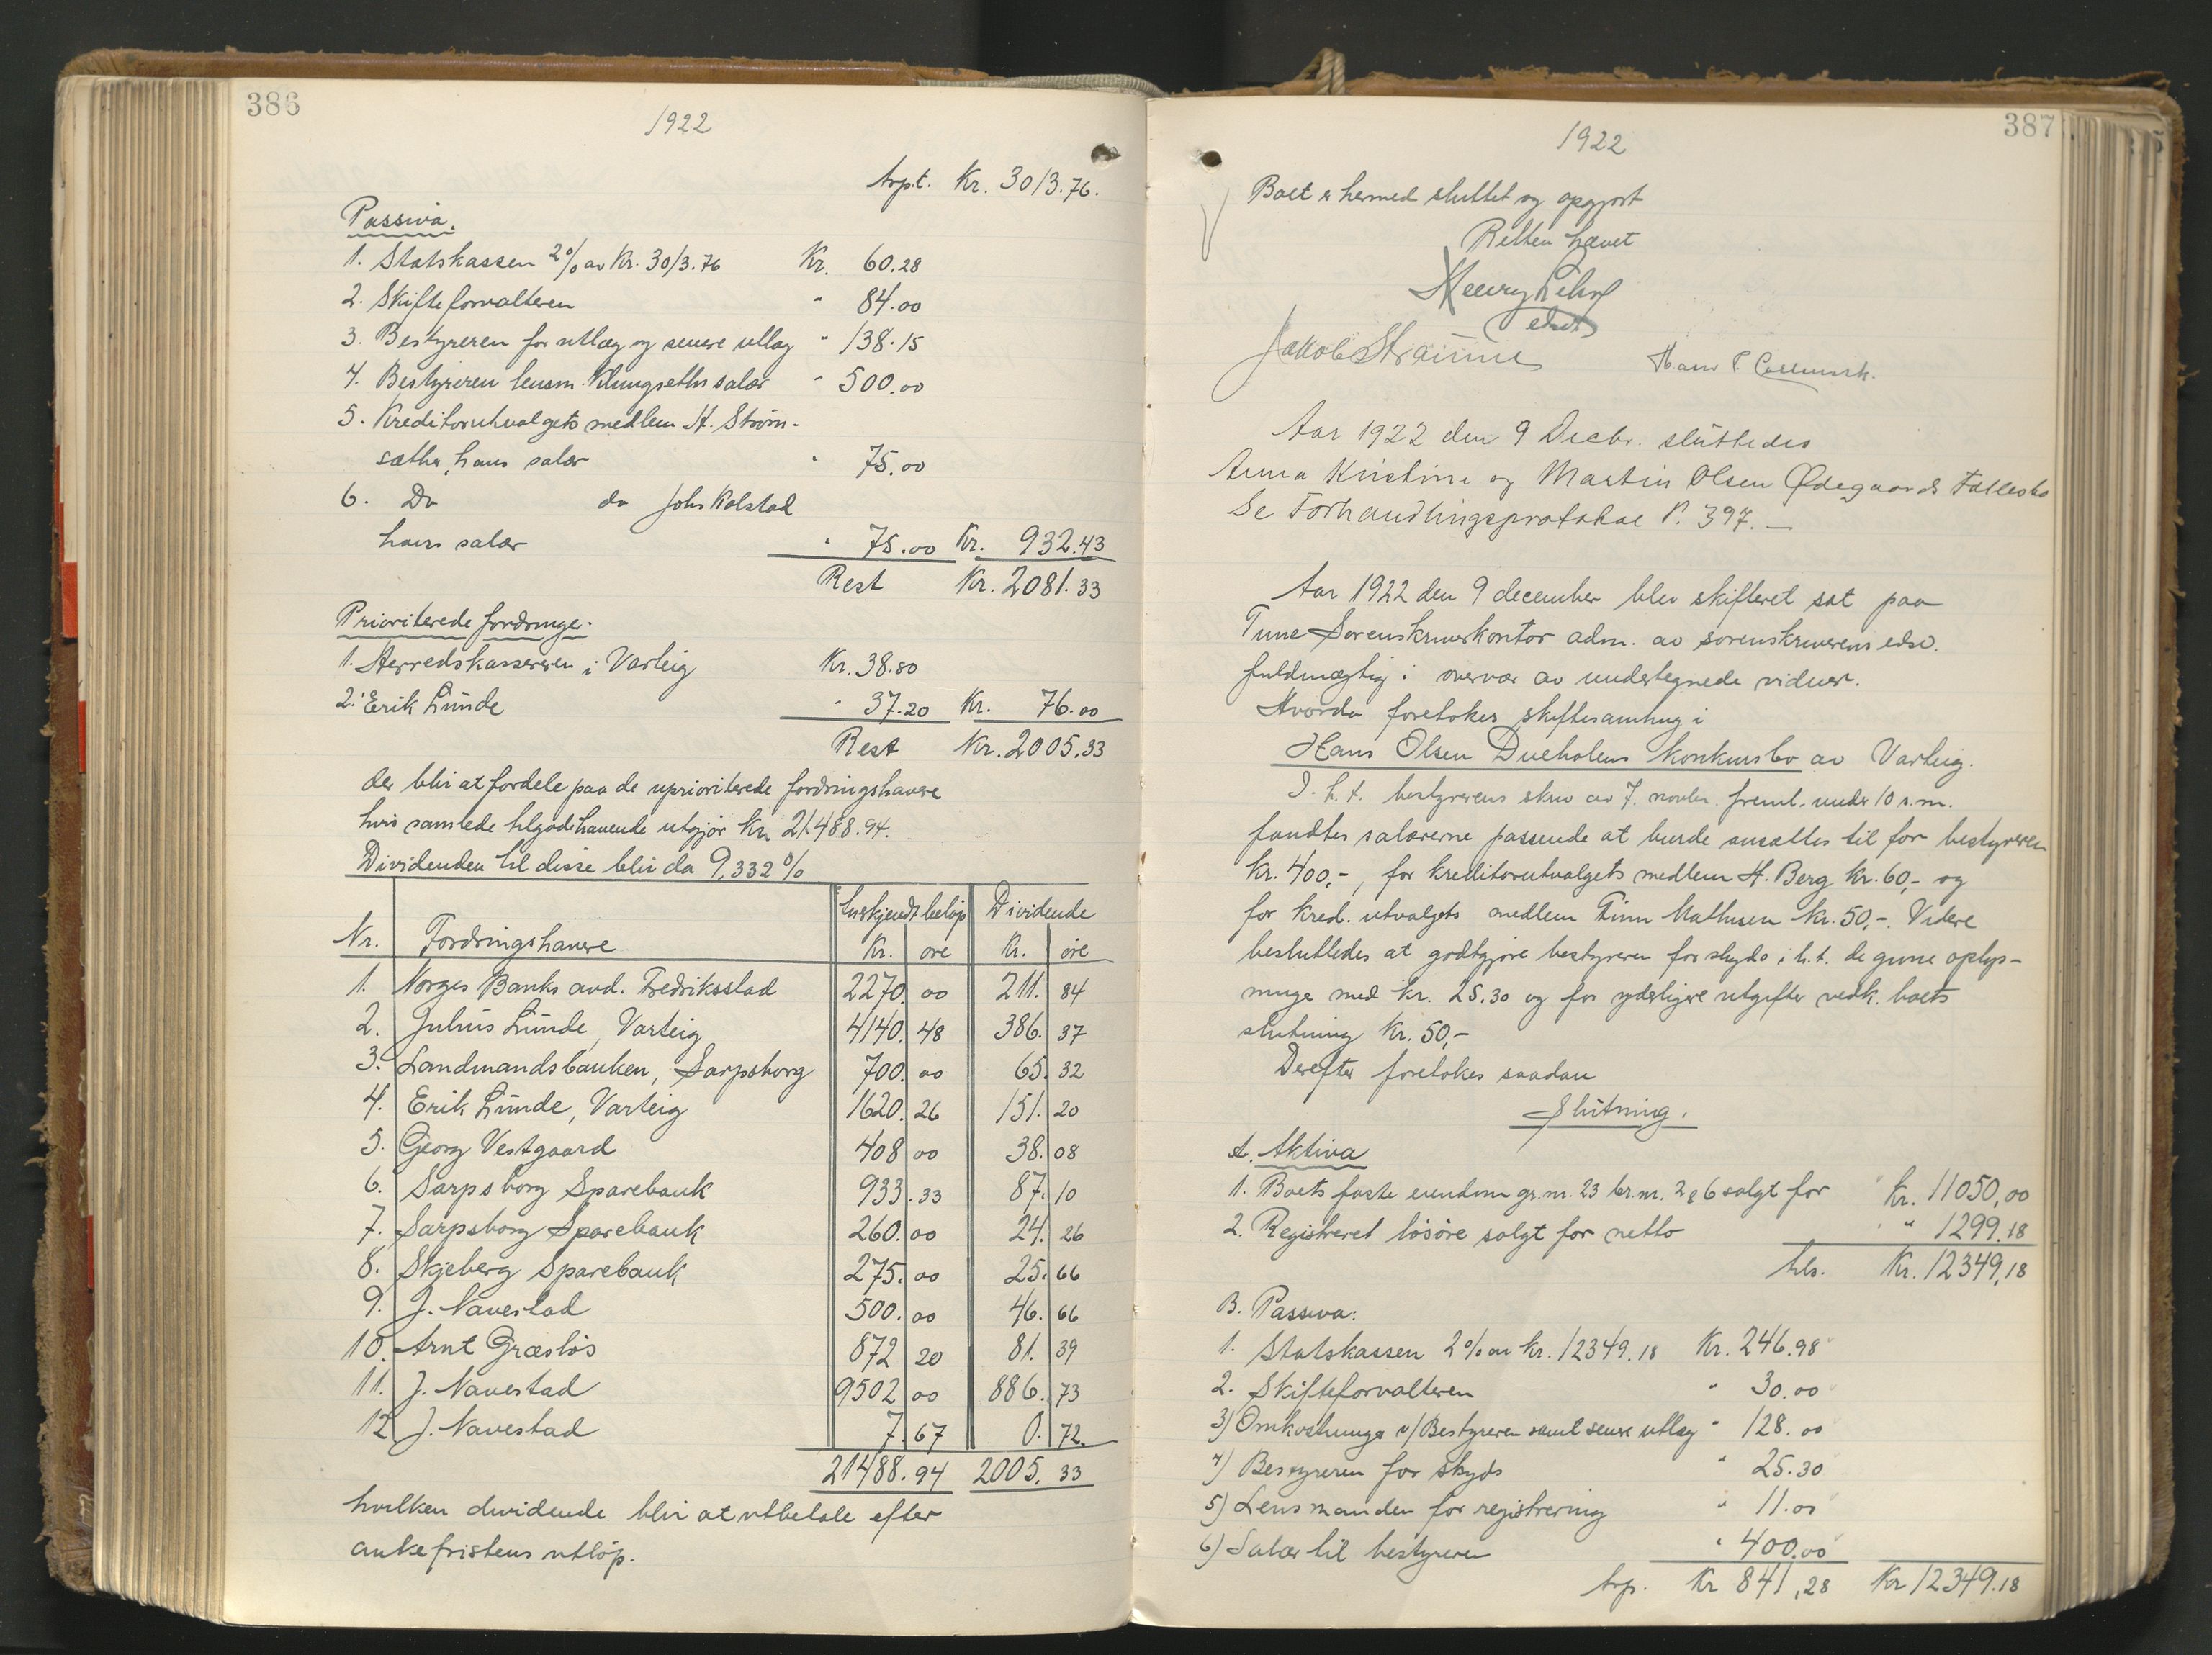 386
1922
Trpt. Kr. 3013.76.
Passiva.
1. Statskassen 2% av Kr. 3013.76 Kr. 60.28
2. Skifteforvalteren " 84.00
3. Bestyreren for utlæg og senere utlæg " 138.15
4. Bestyreren lensm. Klungseths salær " 500.00
5. Kreditorutvalgets medlem H. Strøm-
sæther, hans salær " 75.00
6. Do do Johs Kolstad
hans salær " 75.00 Kr. 932.43
Rest Kr. 2081.33
Prioriterede fordringer.
1. Herredskassereren i Varteig Kr. 38.80
2. Erik Lunde " 37.20 Kr. 76.00
Rest Kr. 2005.33
der blir at fordele paa de uprioriterede fordringshavere
hvis samlede tilgodehavende utgjør Kr. 21.488.94.
Dividenden til disse blir da 9,332 %
Nr. Fordringshavere Anerkjendt beløp Dividende
Kr. øre Kr. øre
1. Norges Banks avd. Fredriksstad 2270. 00 211. 84
2. Julius Lunde, Varteig 4140. 48 386. 37
3. Landmandsbanken, Sarpsborg 700. 00 65. 32
4. Erik Lunde, Varteig 1620. 26 151. 20
5. Georg Vestgaard 408 00 38. 08
6. Sarpsborg Sparebank 933. 33 87. 10
7. Sarpsborg Sparebank 260. 00 24. 26
8. Skjeberg Sparebank 275. 00 25. 66
9. J. Navestad 500. 00 46. 66
10. Arnt Græsløs 872 20 81. 39
11. J. Navestad 9502 00 886. 73
12. J. Navestad 7. 67 0. 72.
21488. 94 2005. 33
hvilken dividende blir at utbetale efter
ankefristens utløp.
387
1922
Boet er hermed sluttet og opgjort
Retten hævet
Henry
edsv
Jakob Straume Hans P.
Aar 1922 den 9 Decbr. sluttedes
Anna Kristine og Martin Olsen Ødegaards Fællesbo
Se Forhandlingsprotokol P. 397. —
Aar 1922 den 9 december blev skifteret sat paa
Tune Sorenskriverkontor adm. av sorenskriverens edsv.
fuldmægtig i overvær av undertegnede vidner.
Hvorda foretokes skiftesamling i
Hans Olsen Dueholens konkursbo av Varteig.
I h. t. bestyrerens skriv av 7. novbr. freml. under 10 s.m.
fandtes salærerne passende at burde ansættes til for bestyreren
kr. 400,-, for kreditorutvalgets medlem H. Berg kr. 60,- og
for kred. utvalgets medlem Finn Mathisen kr. 50,-. Videre
besluttedes at godtgjøre bestyreren for skyds i h. t. de givne oplys-
ninger med kr. 25.30 og for yderligere utgifter vedk. boets
slutning Kr. 50,-
Derefter foretokes saadan
Slutning.
A. Aktiva
1. Boets faste eiendom gr.nr. 23 br.nr. 2 & 6 solgt for Kr. 11050,00
2. Registreret løsøre solgt for netto " 1299.18
tils. Kr. 12349,18
B. Passiva:
1. Statskassen 2% av kr. 12349.18 Kr. 246.98
2. Skifteforvalteren " 30.00
3) Omkostninger v/Bestyreren samt senere utlæg " 128.00
4) Bestyreren for skyds " 25.30
5) Lensmanden for registrering " 11.00
6) Salær til bestyreren " 400.00
Trp. Kr 841,28 Kr 12349.18